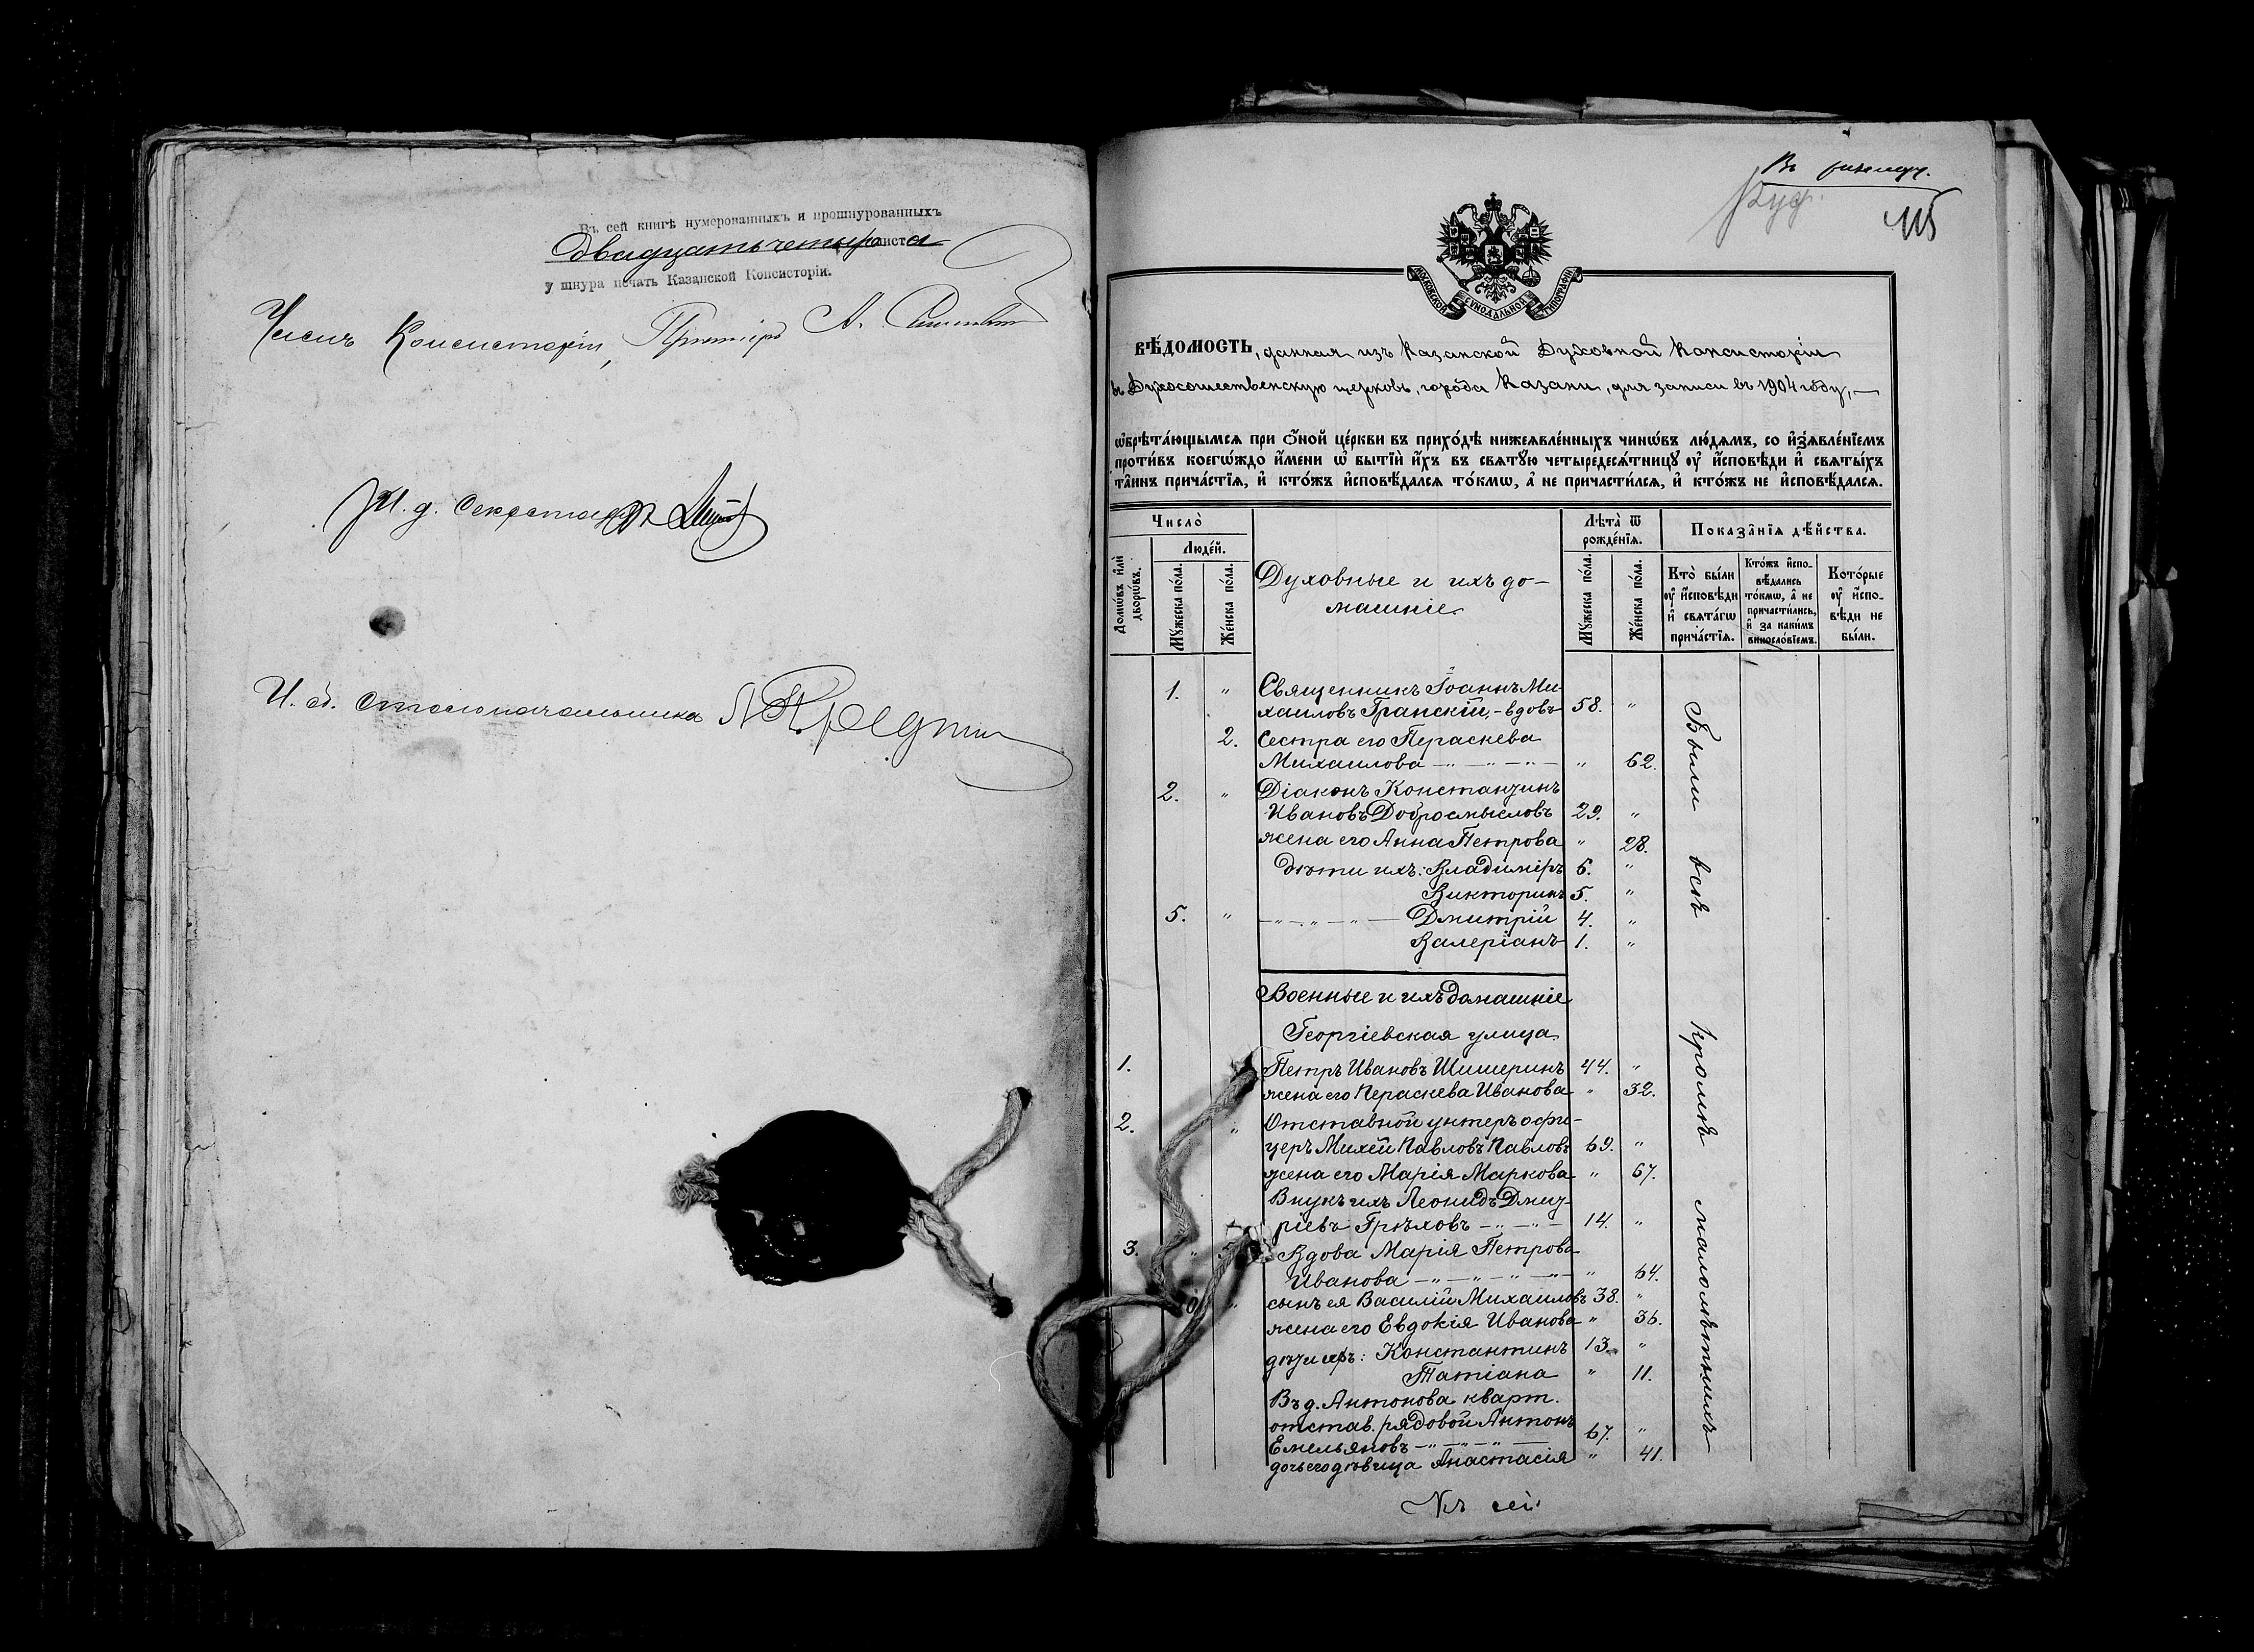 Въ сей книгѣ нумерованныхъ и прошнурованныхъ
двадцать четыре листа
у шнура печать Казанской Консисторіи.
Членъ Консисторіи, А.
И. д. Секретаря
И. об. Столоначальника
Въ
115
МОСКОВСКОЙ СѴНОДАЛЬНОЙ ТИПОГРАФІИ
ВѢ́ДОМОСТЬ, данная изъ Казанской Духовной Консисторіи
въ Духосошественскую церковь, города Казани, для записи въ 1904 году, —
ѡ҆брѣта́ющымсѧ при ѻ҆́ной це́ркви въ прихо́дѣ нижеѧвле́нныхъ чинѡ́въ лю́дѧмъ, со и҆з̾ѧвле́нїемъ
проти́въ коегѡ́ждо и҆́мени ѡ҆ бытїѝ и҆́хъ въ свѧту́ю четыредесѧ́тницꙋ ᲂу҆ и҆́сповѣди и҆ свѧты́хъ
та̑инъ прича́стїѧ, и҆ кто́жъ и҆сповѣ́далсѧ то́кмѡ, а҆ не причасти́лсѧ, и҆ кто́жъ не и҆сповѣ́далсѧ.
Число̀
Домѡ́въ и҆лѝ дворѡ́въ.
Люде́й.
Мꙋ́жеска по́ла.
Же́нска по́ла.
Духовные и ихъ до-
машніе
Лѣ́та ѿ рожде́нїѧ.
Мꙋ́жеска по́ла.
Же́нска по́ла.
Показа̑нїѧ дѣ́йства.
Кто̀ бы́ли ᲂу҆ и҆́сповѣди и҆ свѧта́гѡ прича́стїѧ.
Кто́жъ и҆спо-вѣ́дались то́кмѡ, а҆ не причасти́лись, и҆ за каки́мъ виносло́вїемъ.
Кото́рые ᲂу҆ и҆́спо-вѣди не бы́ли.
1. " Священникъ Іоаннъ Ми-
хаиловъ Гранскій, - вдовъ 58. "
2. Сестра его Параскева
Михаилова — " — " — " — " 62.
2. " Діаконъ Константинъ
Ивановъ Добросмысловъ 29. "
жена его Анна Петрова " 28.
дѣти ихъ: Владиміръ 6. "
Викторинъ 5. "
5. " — " — " — " — Дмитрій 4. "
Валеріанъ 1. "
Военные и ихъ домашніе
Георгіевская улица
1. Петръ Ивановъ Шишеринъ 44. "
жена его Параскева Иванова " 32.
2. " Отставной унтеръ офи-
церъ Михей Павловъ Павловъ 69. "
жена его Марія Маркова " 67.
Внукъ ихъ Леонидъ Дмит-
ріевъ Грѣховъ — " — " — 14. "
3. " Вдова Марія Петрова
Иванова — " — " — " — " — " 64.
сынъ ея Василій Михаиловъ 38. "
жена его Евдокія Иванова " 36.
дѣти ихъ: Константинъ 13. "
Татіана " 11.
Въ д. Антонова кварт.
отстав. рядовой Антонъ
Емельяновъ — " — " — " — 67. "
дочь его дѣвица Анастасія " 41.
Были всѣ кромѣ малолѣтнихъ